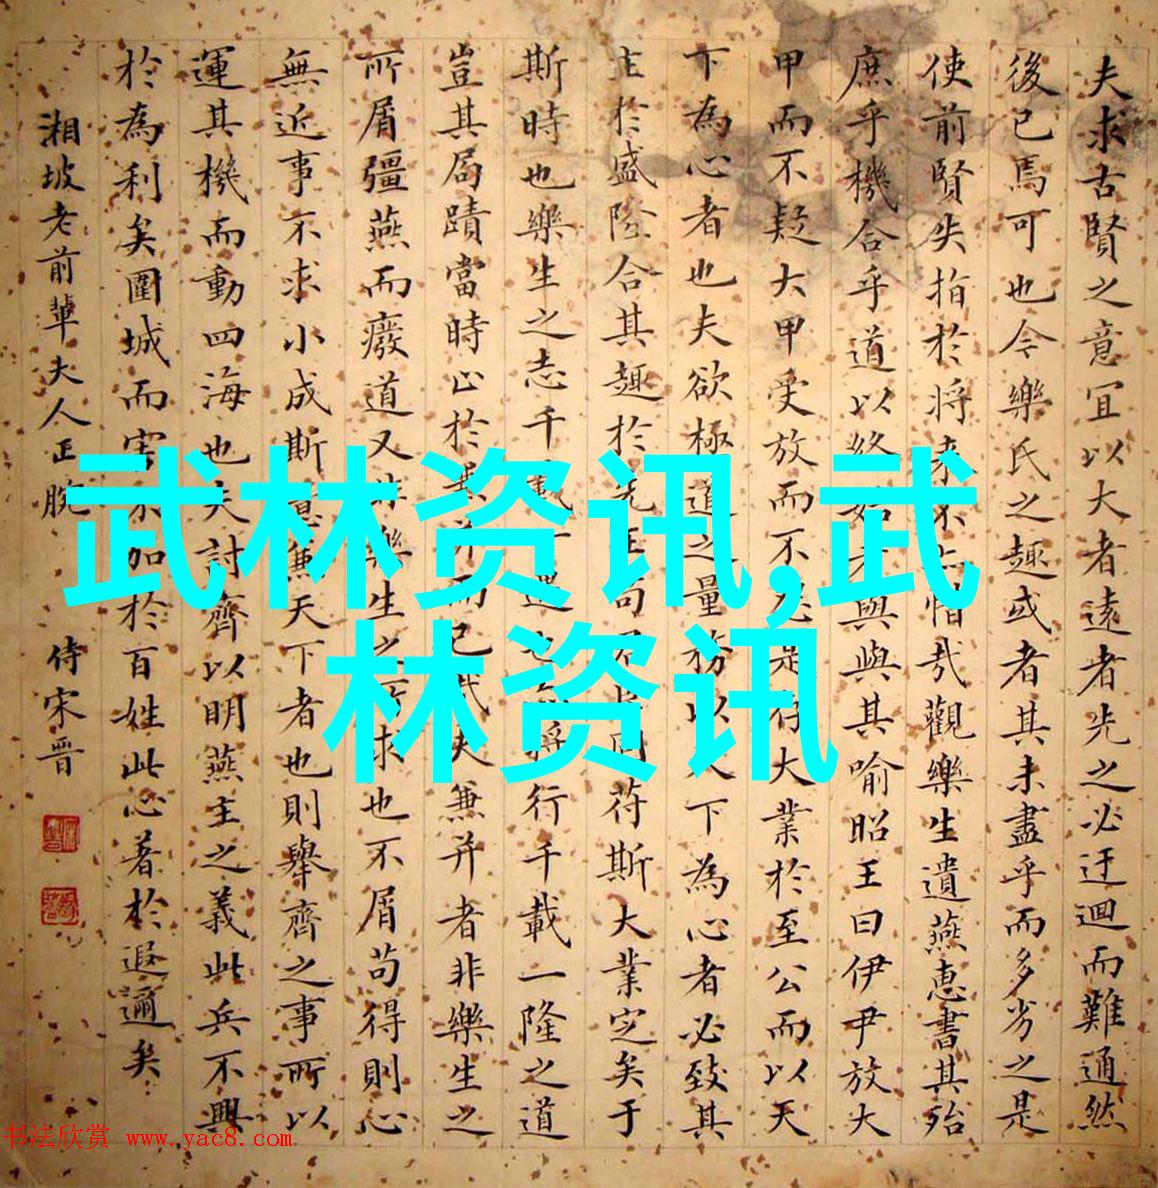 夫求古賢之意宜以大者遠者先之必迂迴而難通然
後已焉可也今樂氏之趣或者其未盡乎而多劣之是
使前賢失指於將來不亦惜哉觀樂生遺燕惠書其殆
庶乎機合乎道以終始者與其喻昭王曰伊尹放大
甲而不疑大甲受放而不是存大業於至公而以天
下為心者也夫欲極道之量務以天下為心者必致其
主於盛隆合其趣於先王苟君臣同符斯大業定矣于
斯時也樂生之志千載一遇也將行千載一隆之道
豈其局蹟當時止於兼并而已哉夫兼并者非樂生之
所屑彊燕而廢道又非樂生之所求也不屑苟得則心
無近事不求小成斯意兼天下者也則舉齊之事所以
運其機而動四海也夫討齊以明燕主之義此兵不興
於為利矣圍城而害不加於百姓此心著於遐邇矣
湘坡老前輩夫人正腕
侍宋晋
武林资讯,武
林资讯
书法欣赏 www.yac8.com